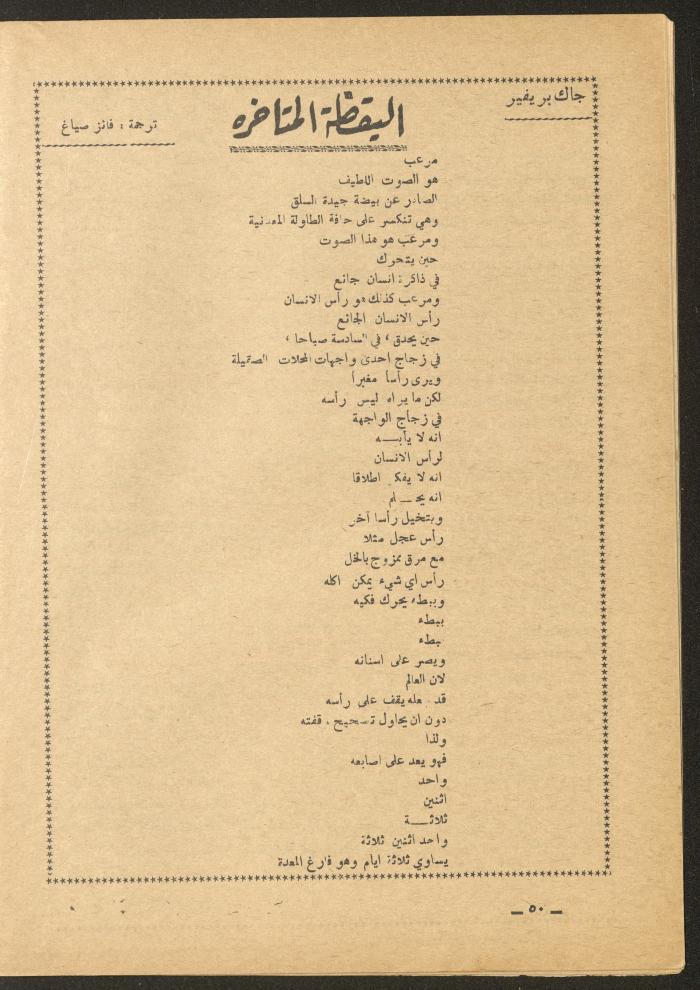 جاك بريفير
اليقظة المتاخره
ترجمة : فائز صياغ
مرعب
هو الصوت اللطيف
الصادر عن بيضة جيدة السلق
وهي تنكسر على حافة الطاولة المعدنية
ومرعب هو هذا الصوت
حين يتحرك
في ذاكرة انسان جائع
ومرعب كذلك هو رأس الانسان
رأس الانسان الجائع
حين يحدق ، في السادسة صباحا ،
في زجاج احدى واجهات المحلات الصقيلة
ويرى رأسا مغبرا
لكن ما يراه ليس رأسه
في زجاج الواجهة
انه لا يأبـــه
لرأس الانسان
انه لا يفكر اطلاقا
انه يحـــلم
ويتخيل رأسا آخر
رأس عجل مثلا
مع مرق ممزوج بالخل
رأس اي شيء يمكن اكله
وببطء يحرك فكيه
ببطء
ببطء
ويصر على اسنانه
لان العالم
قد جعله يقف على رأسه
دون ان يحاول تصحيح وقفته
ولذا
فهو يعد على اصابعه
واحد
اثنين
ثلاثـــة
واحد اثنين ثلاثة
يساوي ثلاثة ايام وهو فارغ المعدة
ــ ٥٠ ــ